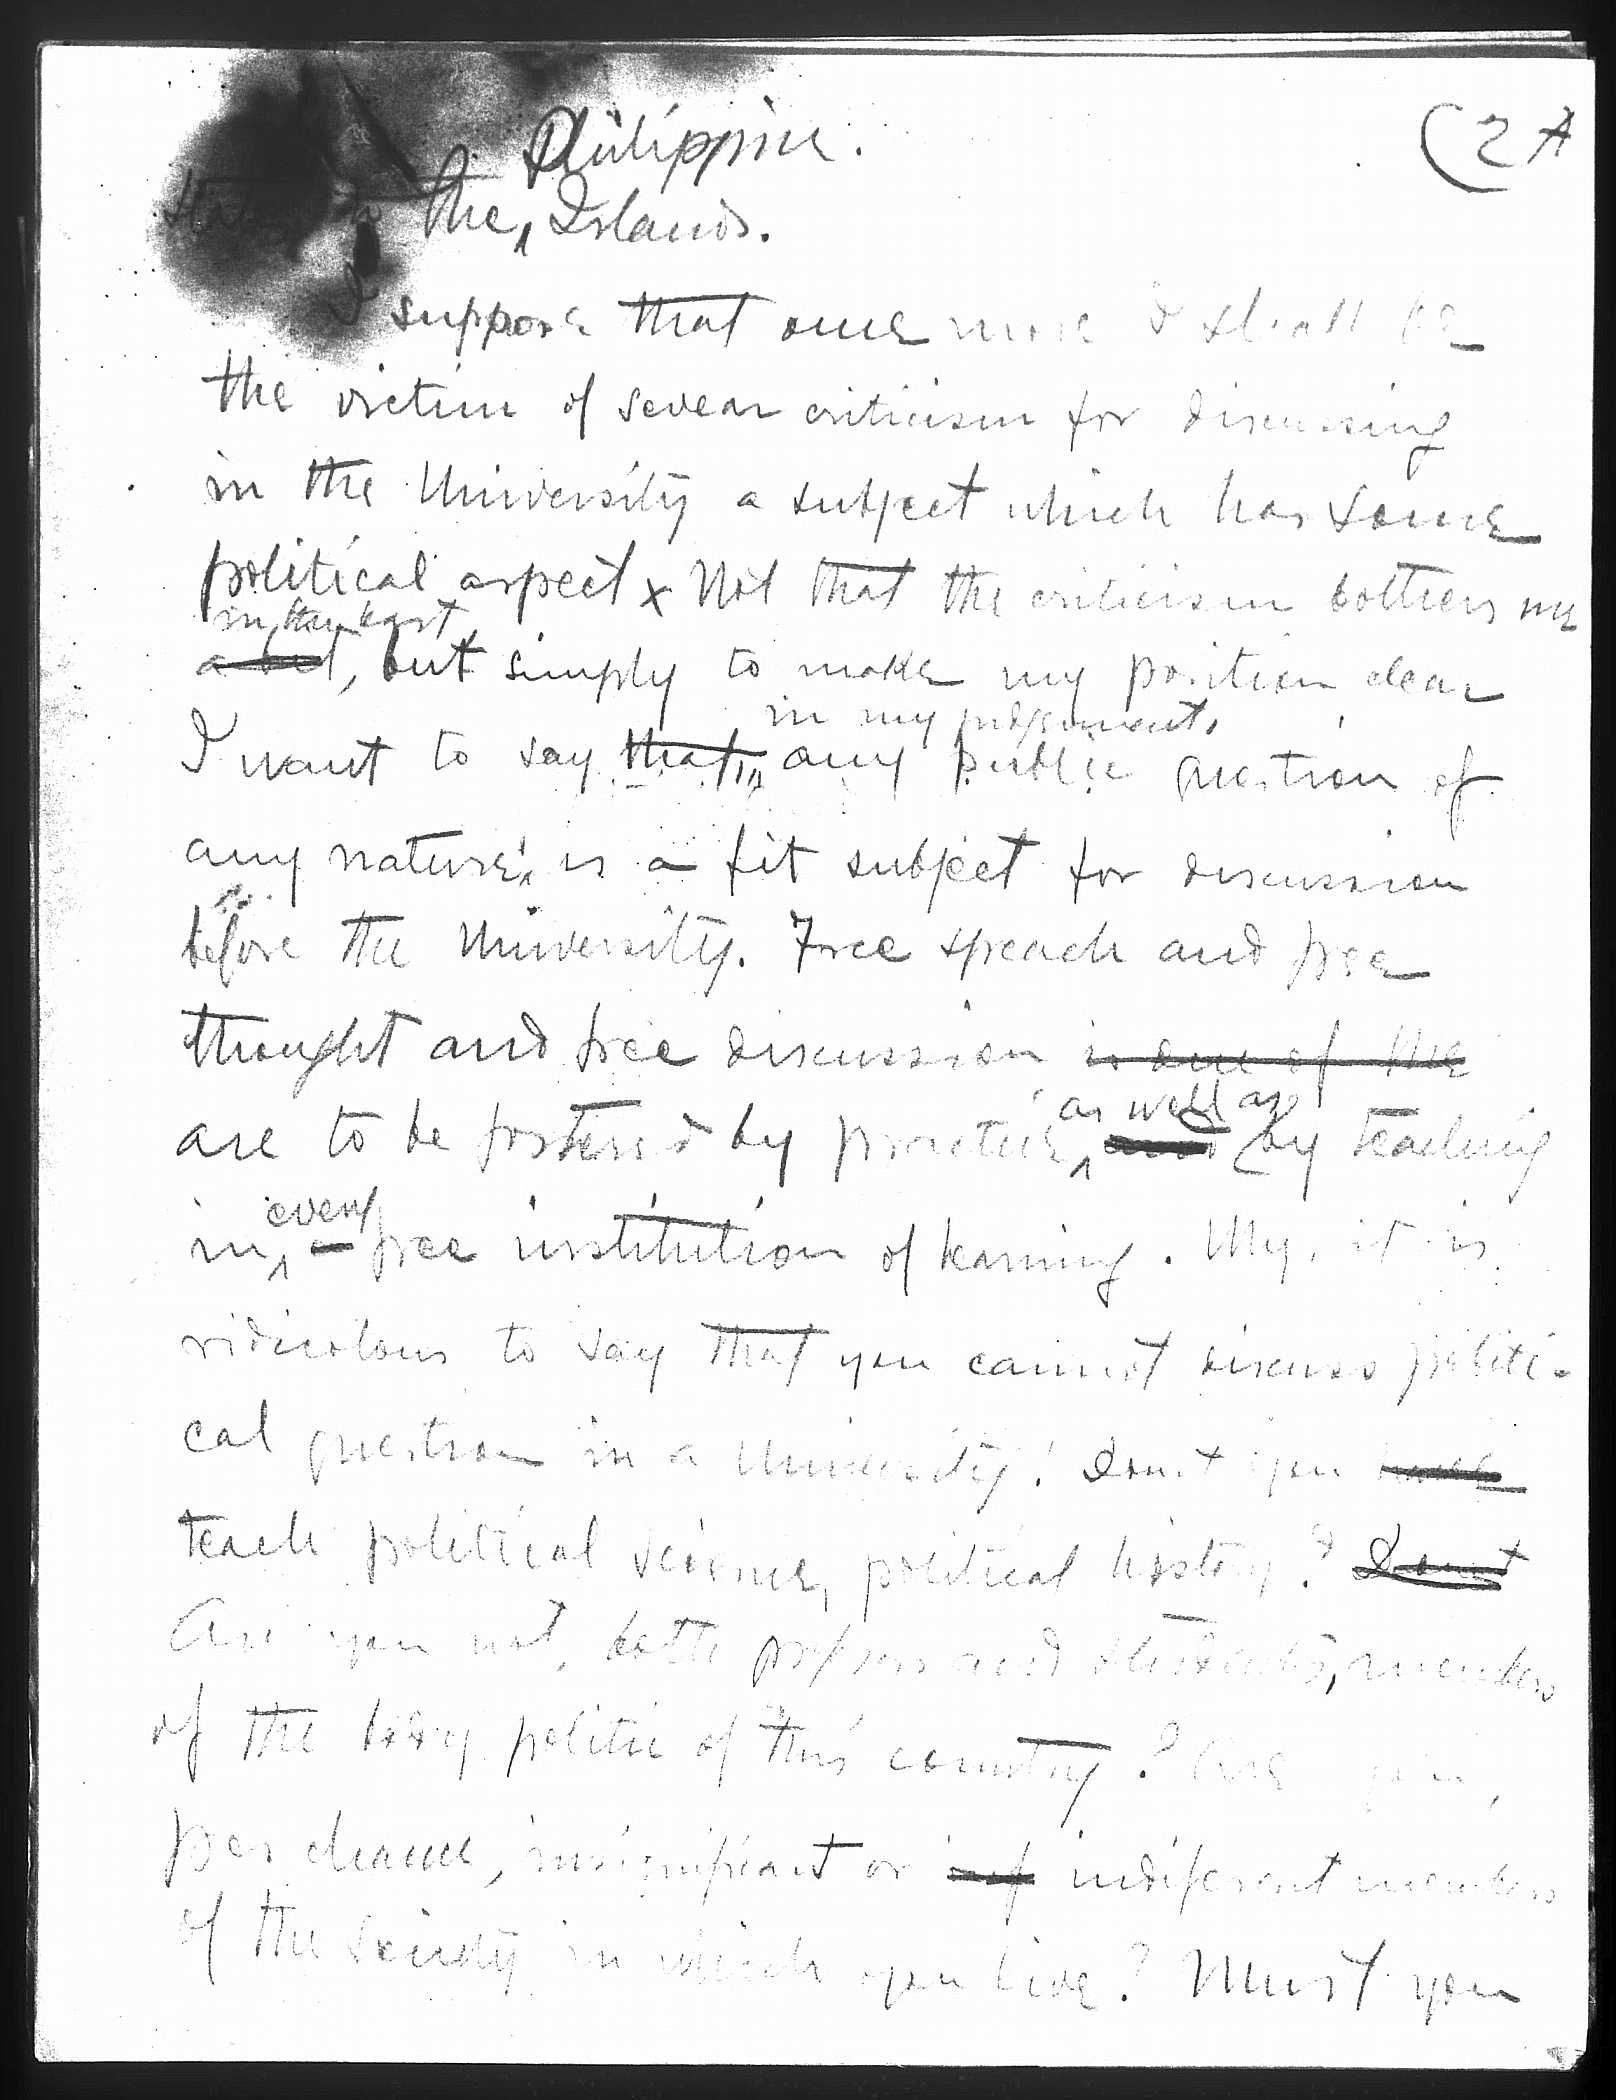 (2 A
Philippine.
the Islands.
I suppose that once more I shall be
the victim of sevear criticism for discussing
in the University a subject which has some
political aspect x Not that the criticism bothers me
in the least
a bit, but simply to make my position clear
in my judgement,
I want to say that any public question of
any nature, is a fit subject for discussion
before the University. Free speach and free
thought and free discussion is one of the
as well as
are to be fostered by practice, and by teaching
every
in a free institution of learning. Why, it is
ridicolous to say that you cannot discuss politi-
cal question in a University! Don't you have
teach political science, political history? Don't
Are you not, both profesors and students, members
of the body politic of this country? Are you,
per chance, insignificant or inof indiferent members
of the Society in which you live? Must you